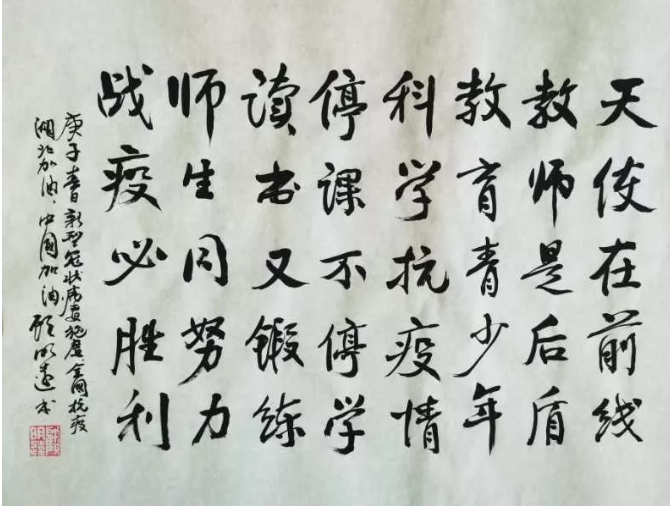 天使在前线
教师是后盾
教育青少年
科学抗疫情
停课不停学
读书又锻练
师生同努力
战疫必胜利
庚子春日新型冠状病毒施虐全国抗疫
湖北加油、中国加油 顾明远书